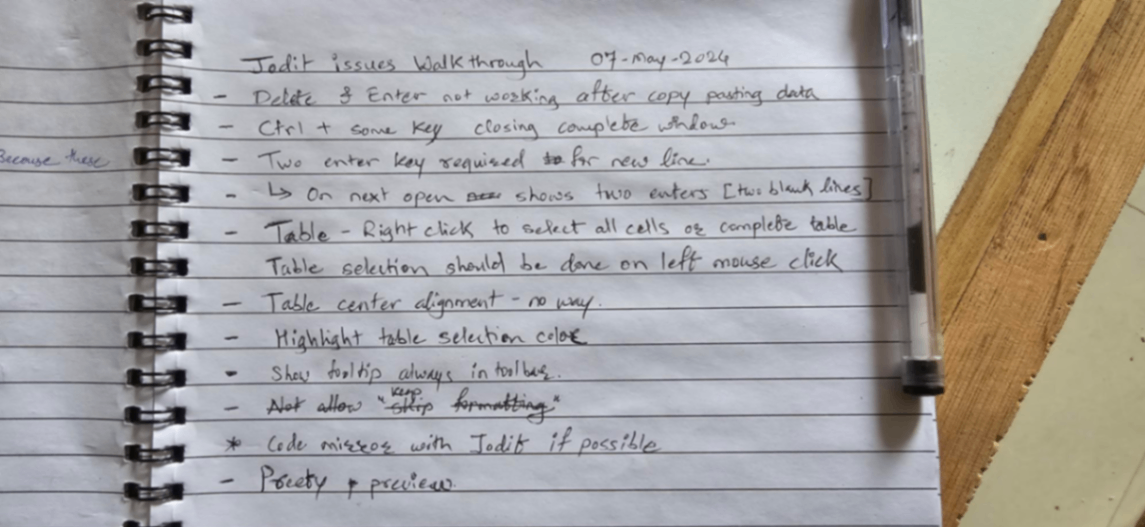 Jodit issues Walkthrough 07-May-2024
- Delete & Enter not working after copy pasting data
- Ctrl + some key closing complete window
Because these
- Two enter key required to for new line.
- ↳ On next open shows two enters [two blank lines]
- Table - Right click to select all cells or complete table
Table selection should be done on left mouse click
- Table center alignment - no way.
- Highlight table selection color
- Show tooltip always in toolbar.
keep
- Not allow "skip formatting"
* Code mirror with Jodit if possible
- Preety preview.